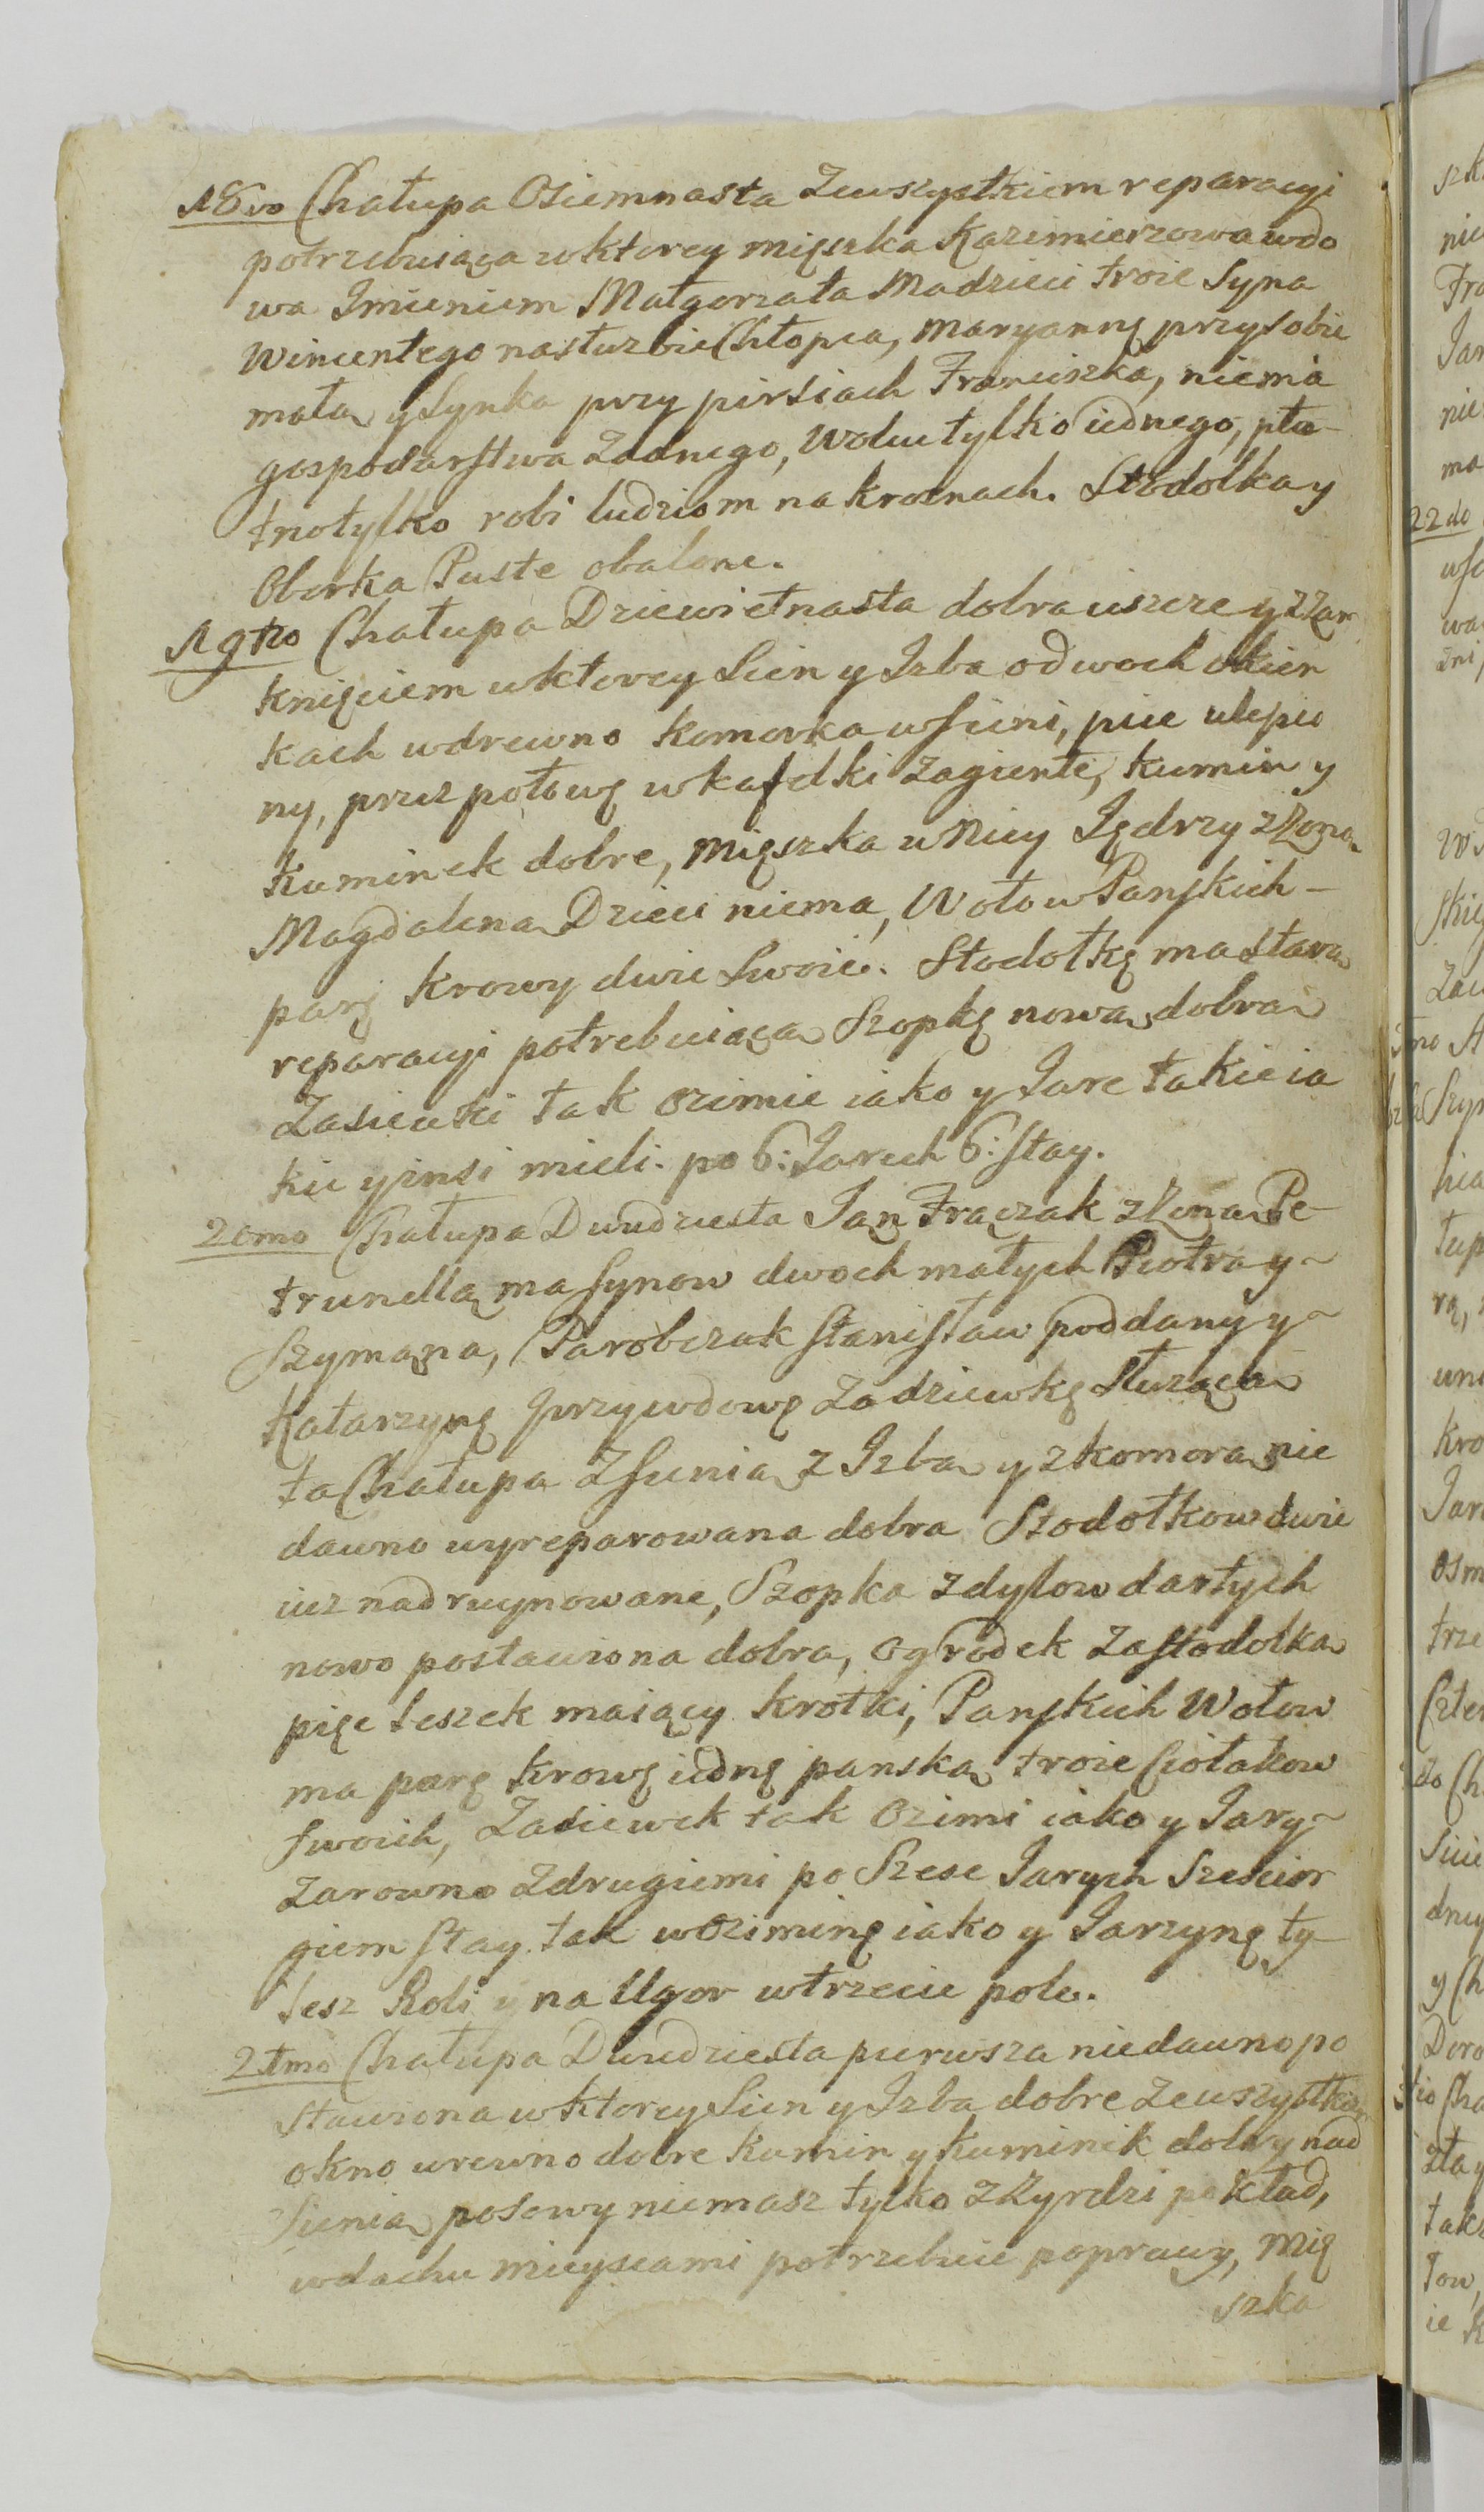 18vo Chałupa Osiemnasta Zewszystkiem reparacyi
potrzebuiąca wktorey mięszka Kazimierzowa wdo
wa Imieniem Małgorzata Madzieci troie Syna
Wincentego nasłużbie Chłopca, Maryannę przysobie
małą ySynka przy pirsiach Franciszka, niema
gospodarstwa Zadnego, Wołu tylko iednego, płu
tno tylko robi ludziom na krosnach. Stodolka y
Oborka Puste obalone.
19no Chałupa Dziewiętnasta dobra ieszcze y zZam
knięciem wktorey Sien y Izba odwoch okien
kach wdrewno komorka wsieni, piec ulepio
ny, przez połowę wkafelki Zagięnte, kumin y
kuminek dobre, mięszka wNiey Jędrzy zZoną
Magdaleną Dzieci niema, Wołow Panskich
parę krowy dwie Swoie. Stodołkę ma starą
reparacyi potrebuiącą Szopkę nową dobrą
Zasiewki tak ozimie iako y Jare takie ia
kie yinsi mieli. po 6: Jarech 6: stay.
20mo Chałupa Dwudziesta Jan Frączak zZoną Pe
trunellą ma synow dwoch małych Piotra y
Szymana, Parobczak Stanisław poddany y
Katarzynę przywdowę Zadziewkę Służącą
ta Chałupa Zsienią z Izbą y zkomorą nie
dawno wyreparowana dobra Stodołkow dwie
iuz nadruynowane, Szopka zdylow dartych
nowo postawiona dobra, ogrodek Zastodolką
pięc leszek maiący krotki, Panskich Wołow
ma parę krowę iednę panską troie Ciołakow
swoich, Zasiewek tak Ozimi iako y Jary
Zarowno Zdrugiemi po Szesc Jarych Szescior
giem stay. tak wOziminę iako y Jarzynę ty
lesz Roli y na Ugor wtrzecie pole.
21mo Chałupa Dwudziesta pierwsza niedawno po
stawiona wktorey Sien y Izba dobre zewszystkiem
okno wrewno dobre kamin y kuminik dobry nad
Sienią posowy niemasz tylko zZyrdzi pokład,
wdachu mieyscami potrzebuie poprawy, mię
szka